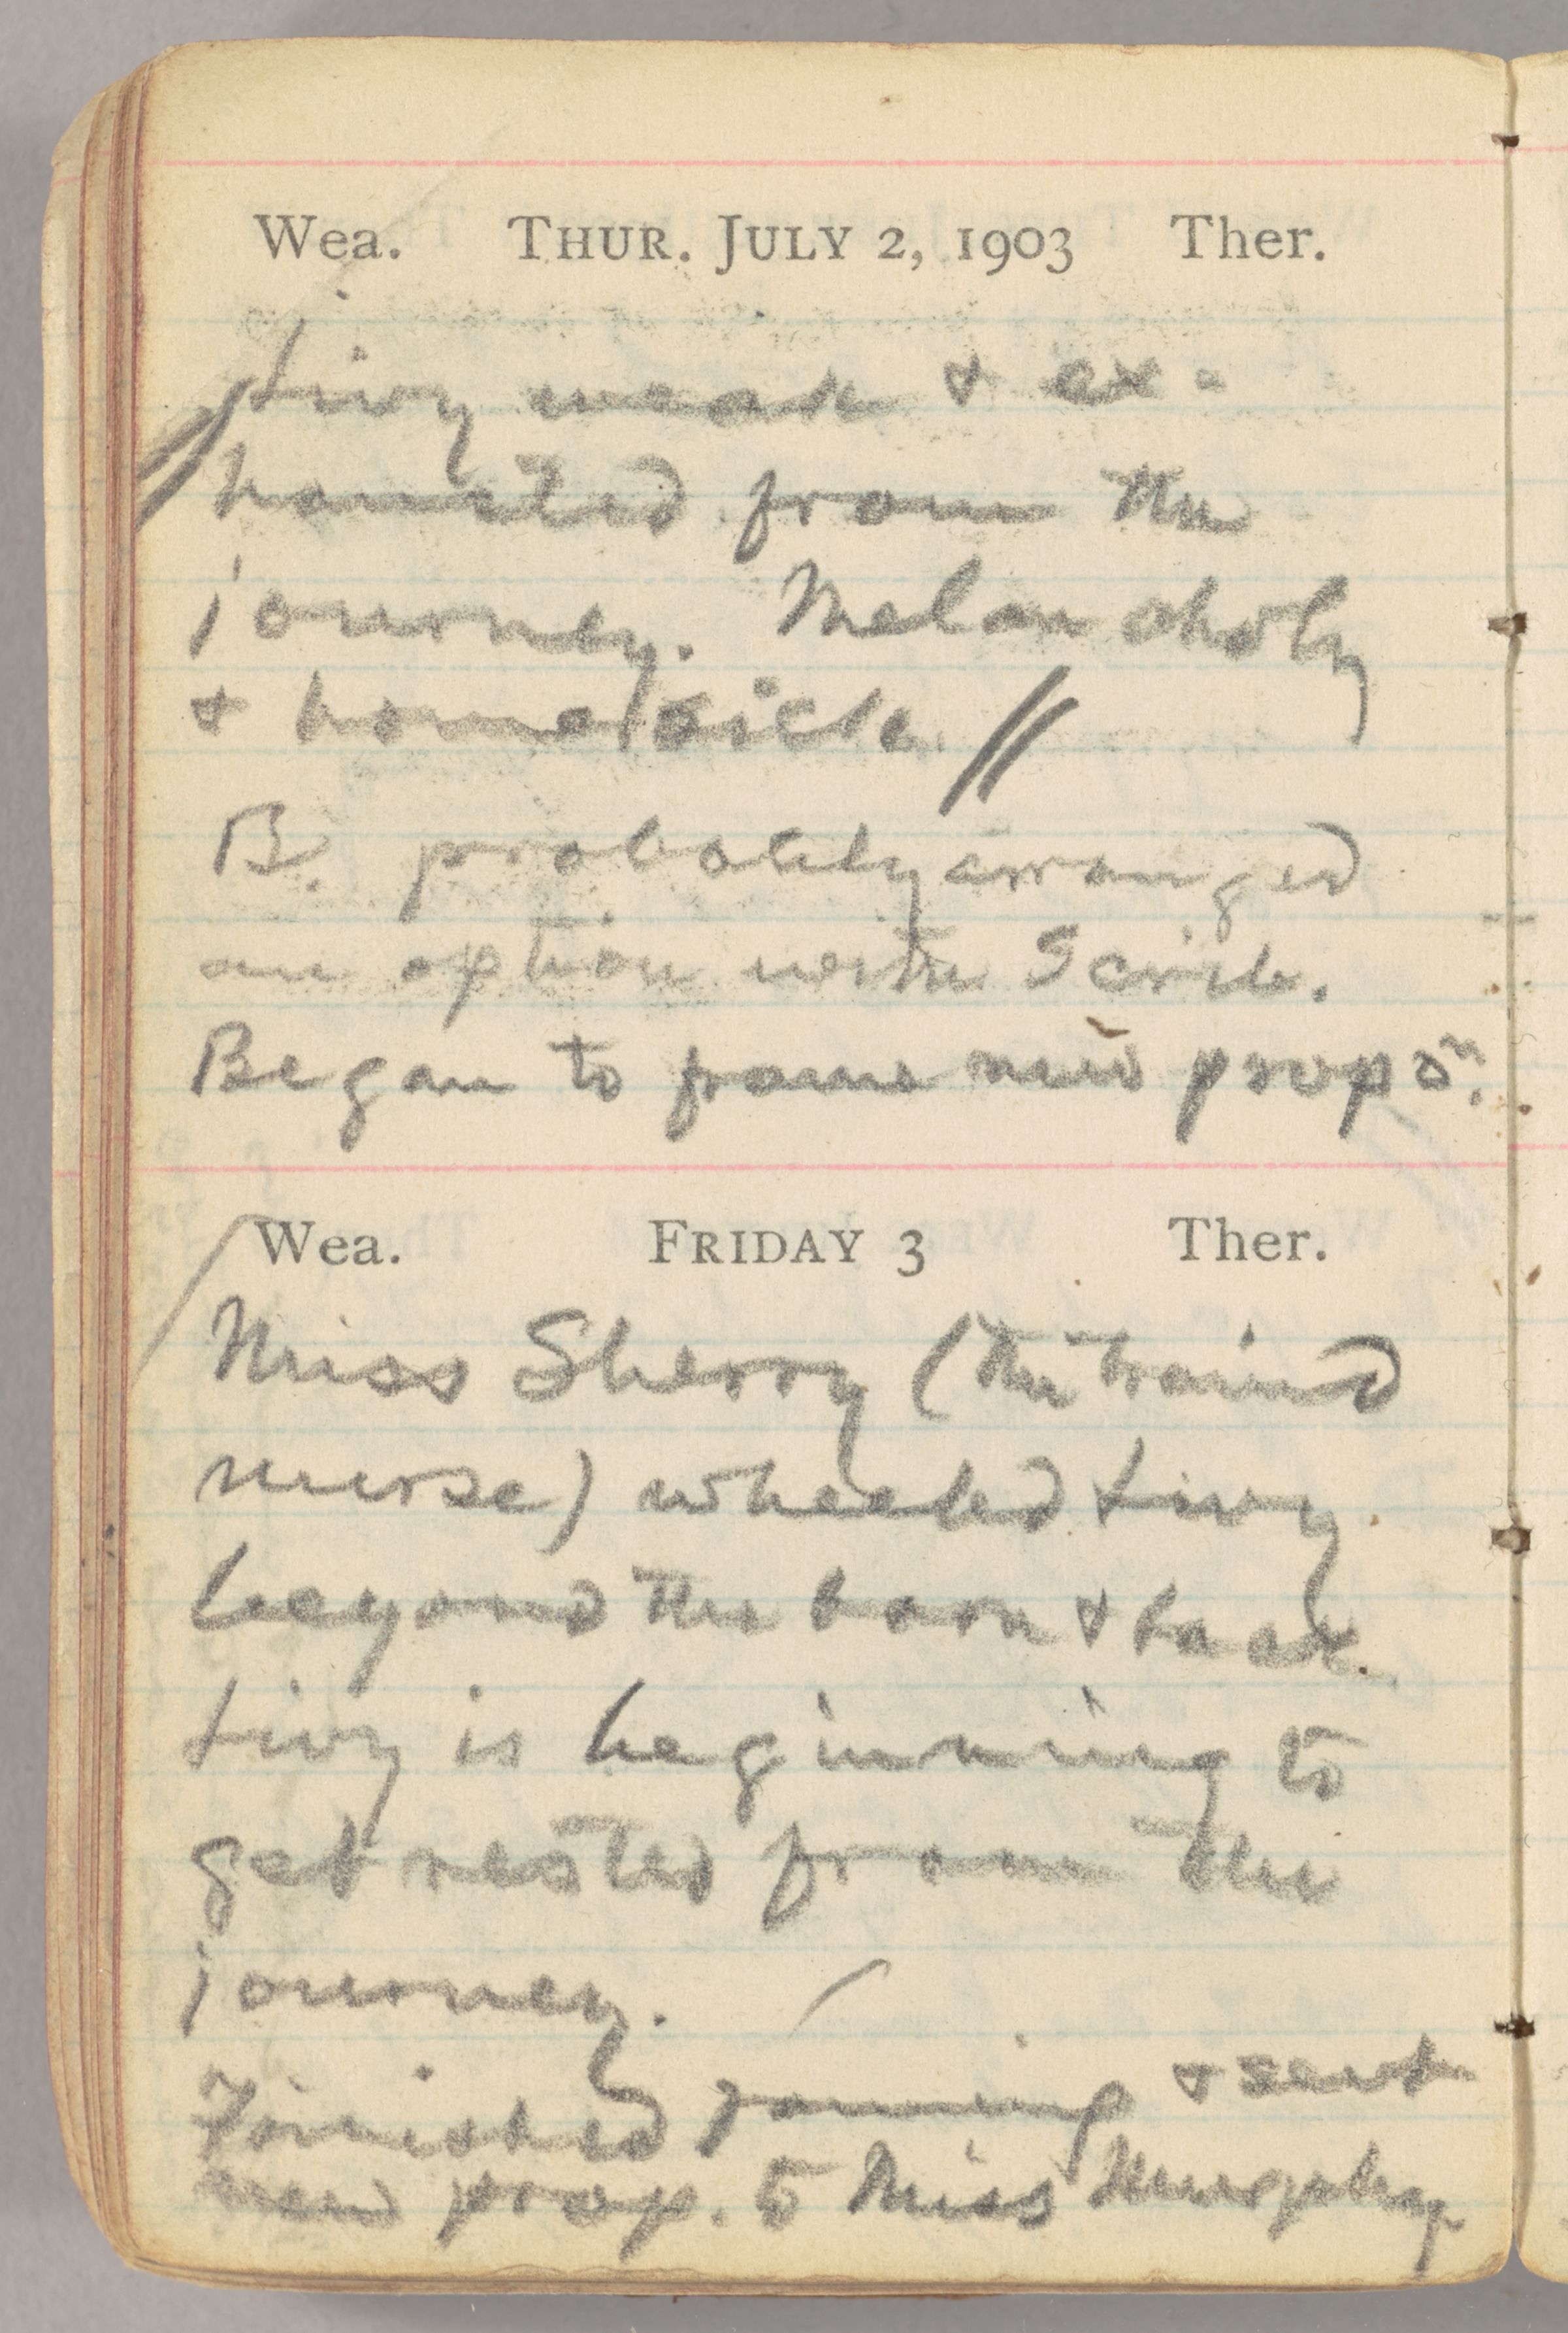 Wea. THUR. JULY 2, 1903 Ther.
Livy weak & ex-
hausted from the
journey. Melancholy
& homesick. //
B. probably arranged
an option with Scrib.
Began to frame new propon.
Wea. FRIDAY 3 Ther.
Miss Sherry (the trained
nurse) wheeled Livy
beyond the barn & back.
Livy is beginning to
get rested from the
journey.
Finished framing & sent
new prop. to Miss Murphy.